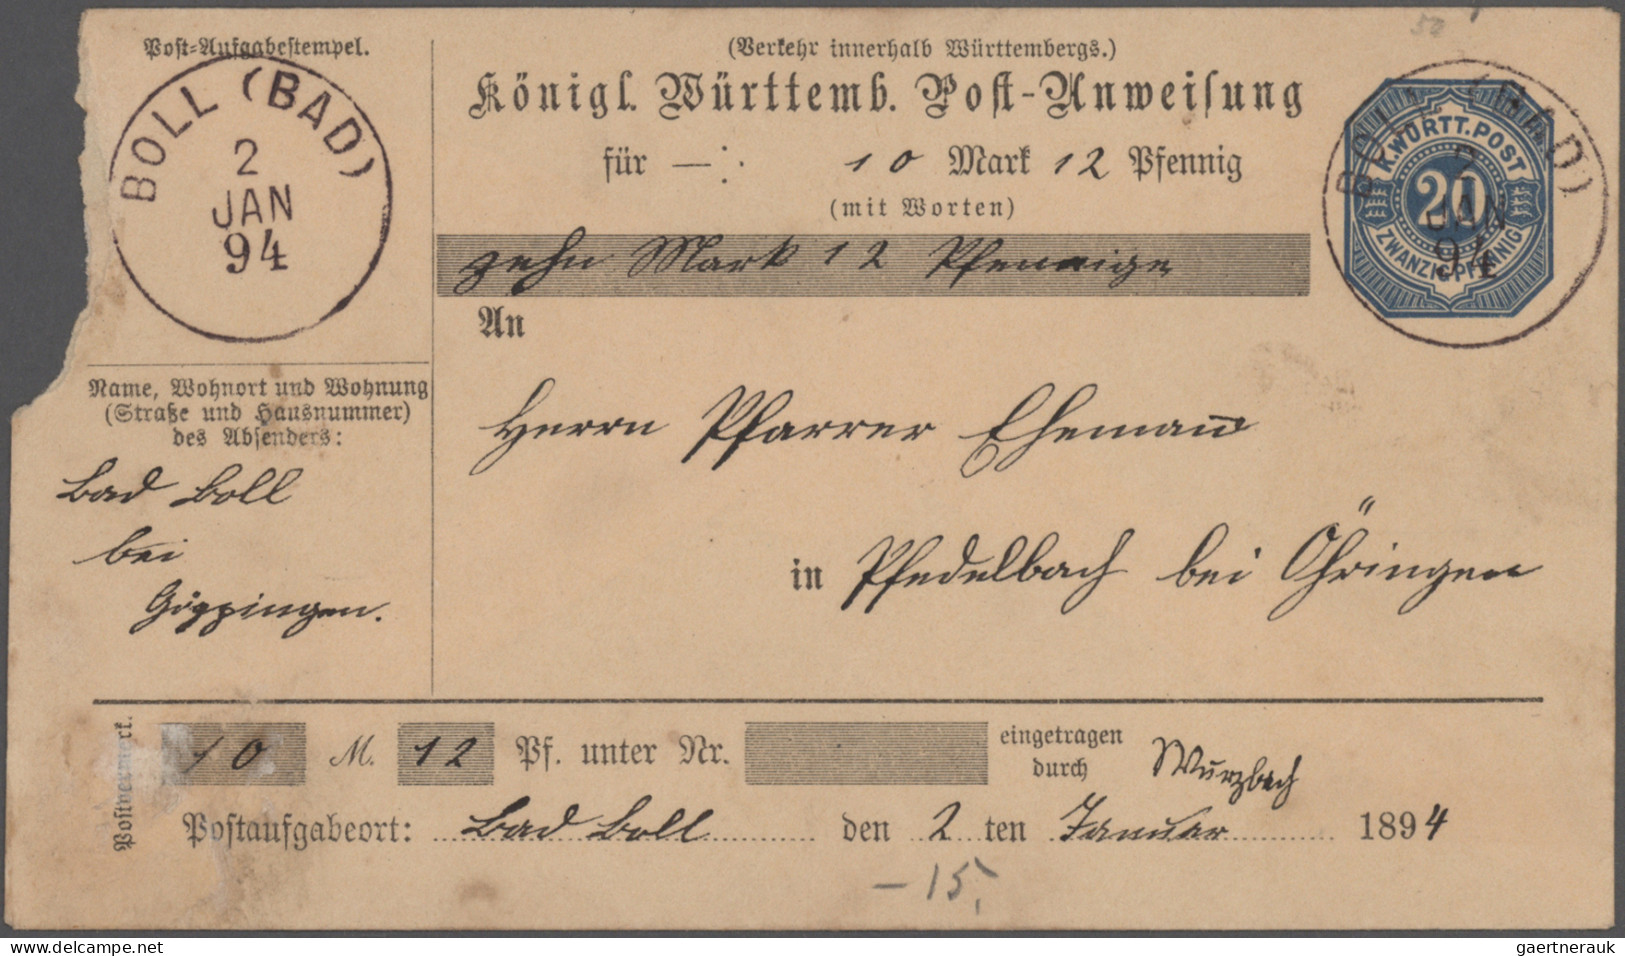 50
Post-Aufgabestempel.
BOLL (BAD)
2
JAN
94
(Verkehr innerhalb Württembergs.)
Königl. Württemb. Post-Anweisung
für — : 10 Mark 12 Pfennig
(mit Worten)
zehn Mark 12 Pfennige
K. WÜRTT. POST
20
ZWANZIG PFENNIG
BOLL (BAD)
2
JAN
94
An
Herrn Pfarrer Ehemann
in Pfedelbach bei Öhringen
Name, Wohnort und Wohnung
(Straße und Hausnummer)
des Absenders:
Bad Boll
bei
Göppingen.
Postvermerk.
10 M. 12 Pf. unter Nr. eingetragen
durch Wurzbach
Postaufgabeort: Bad Boll den 2 ten Januar 1894
-15,
www.delcampe.net
gaertnerauk